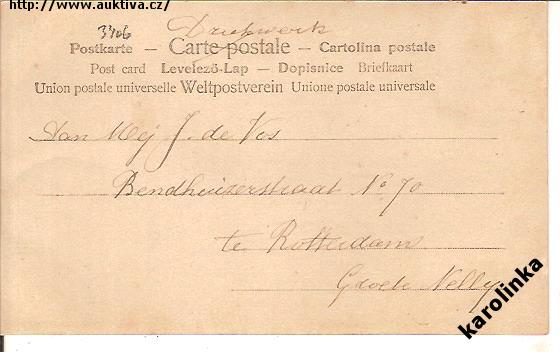 http://www.auktiva.cz/
3406
Drukwerk
Postkarte — Carte postale — Cartolina postale
Post card Levelező-Lap — Dopisnice Briefkaart
Union postale universelle Weltpostverein Unione postale universale
Aan Mej J. de Vos
Bendhuizerstraat No 70
te Rotterdam
Groete Nelly
karolinka